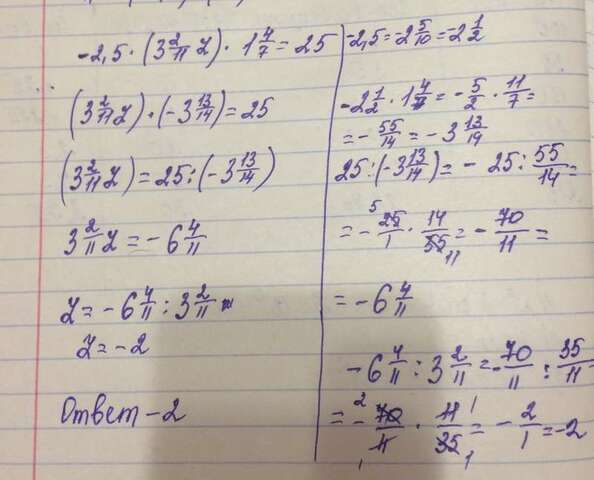 -2,5 · (3 2/11 z) · 1 4/7 = 25
(3 2/11 z) · (-3 13/14) = 25
(3 2/11 z) = 25 : (-3 13/14)
3 2/11 z = -6 4/11
z = -6 4/11 : 3 2/11
z = -2
Ответ -2
-2,5 = -2 5/10 = -2 1/2
-2 1/2 · 1 4/7 = -5/2 · 11/7 =
= -55/14 = -3 13/14
25 : (-3 13/14) = -25 : 55/14 =
= - 5 25/1 · 14/55 11 = -70/11 =
= -6 4/11
-6 4/11 : 3 2/11 = -70/11 : 35/11
= - 2 70/11 1 · 11 1/35 1 = -2/1 = -2